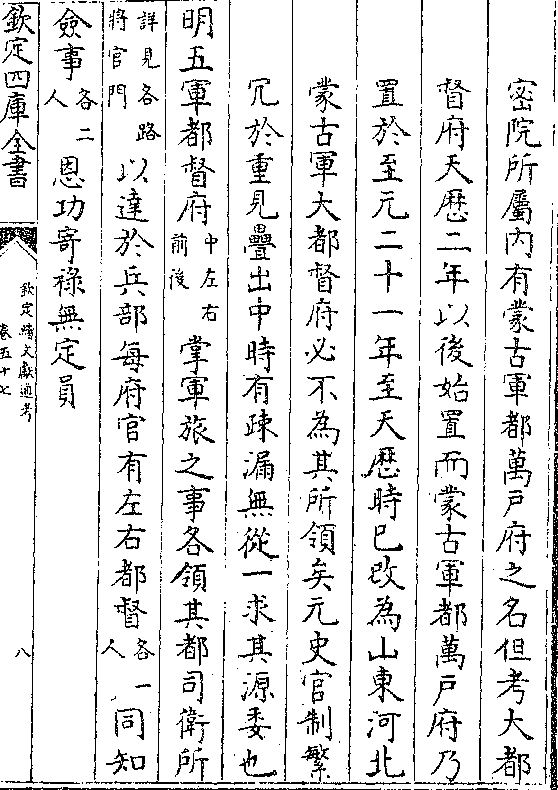 密院所屬内有蒙古軍都萬戶府之名但考大都
督府天厯二年以後始置而蒙古軍都萬戶府乃
置於至元二十一年至天厯時已改為山東河北
蒙古軍大都督府必不為其所領矣元史官制繁
冗於重見疊出中時有疎漏無從一求其源委也
明五軍都督府中左右前後掌軍旅之事各領其都司衛所
詳見各路將官門以達於兵部每府官有左右都督各一人同知
僉事各二人恩功寄祿無定員
欽定四庫全書
欽定續文獻通考
卷五十七
八